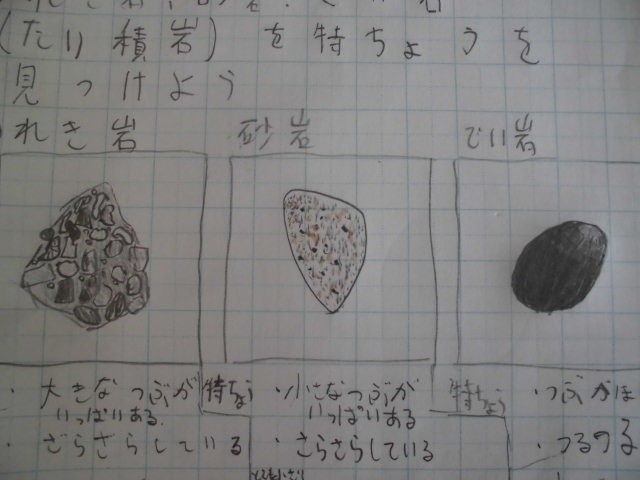 (たい積岩) を特ちょうを
見つけよう
れき岩 砂岩 でい岩
・大きなつぶが
いっぱいある.
・ざらざらしている
特ちょう
・小さなつぶが
いっぱいある
・さらさらしている
特ちょう
・つぶがほ
・つるつる